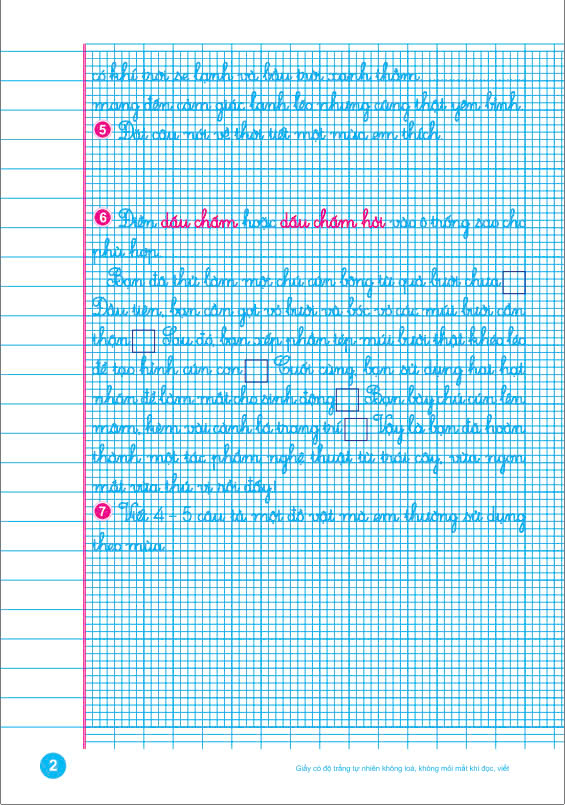 có khí trời se lạnh và bầu trời xanh thẳm
mang đến cảm giác lạnh lẽo nhưng cũng thật yên bình.
5 Đặt câu nói về thời tiết một mùa em thích.
6 Điền dấu chấm hoặc dấu chấm hỏi vào ô trống sao cho
phù hợp.
Bạn đã thử làm một chú cún bông từ quả bưởi chưa
Đầu tiên, bạn cần gọt vỏ bưởi và bóc vỏ các múi bưởi cẩn
thận Sau đó, bạn xếp phần tép múi bưởi thật khéo léo
để tạo hình cún con Cuối cùng, bạn sử dụng hai hạt
nhãn để làm mắt cho sinh động Bạn bày chú cún lên
mâm, kèm vài cành lá trang trí Vậy là bạn đã hoàn
thành một tác phẩm nghệ thuật từ trái cây, vừa ngon
mắt vừa thú vị rồi đấy!
7 Viết 4 – 5 câu tả một đồ vật mà em thường sử dụng
theo mùa.
2 Giấy có độ trắng tự nhiên không loá, không mỏi mắt khi đọc, viết